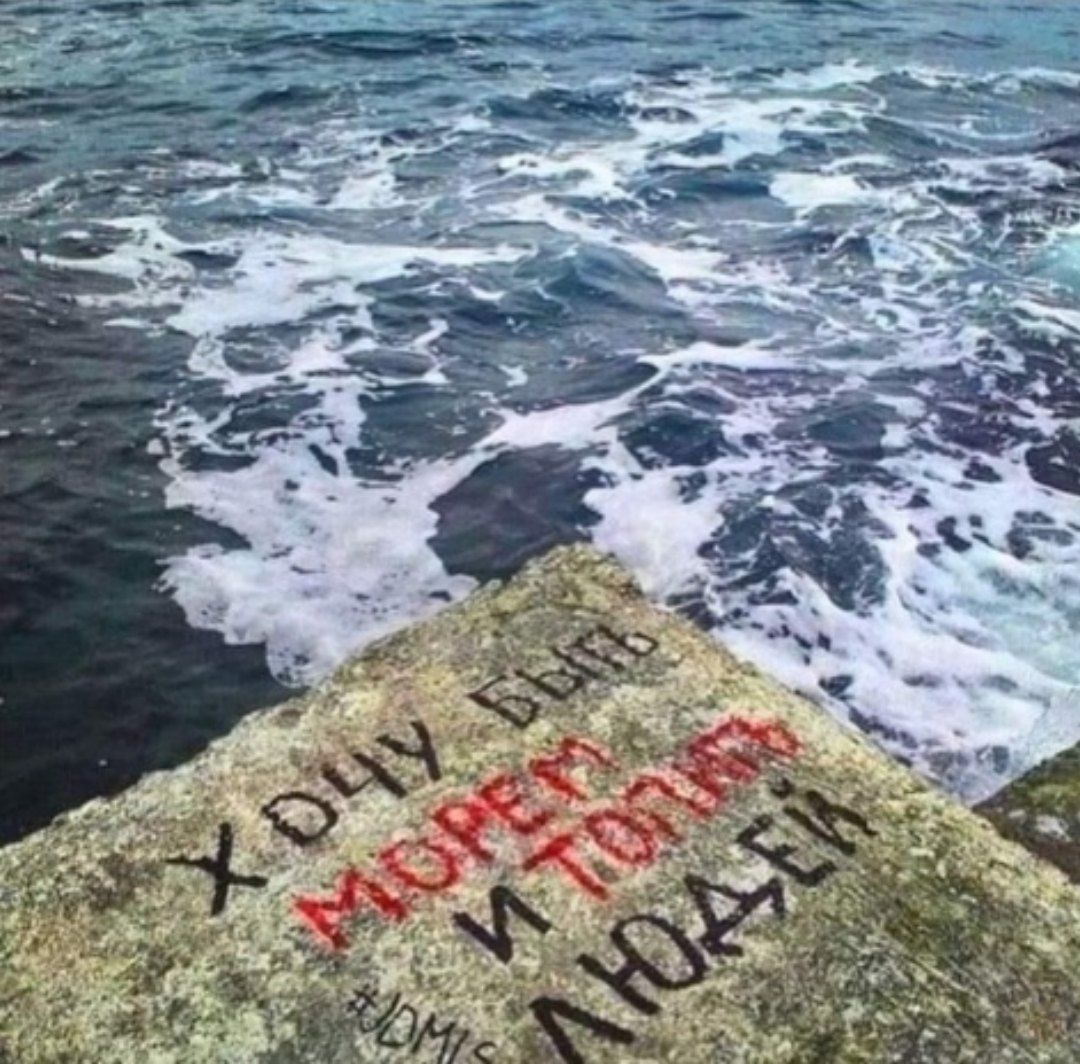 ХОЧУ БЫТЬ
МОРЕМ
И ТОПИТЬ
ЛЮДЕЙ